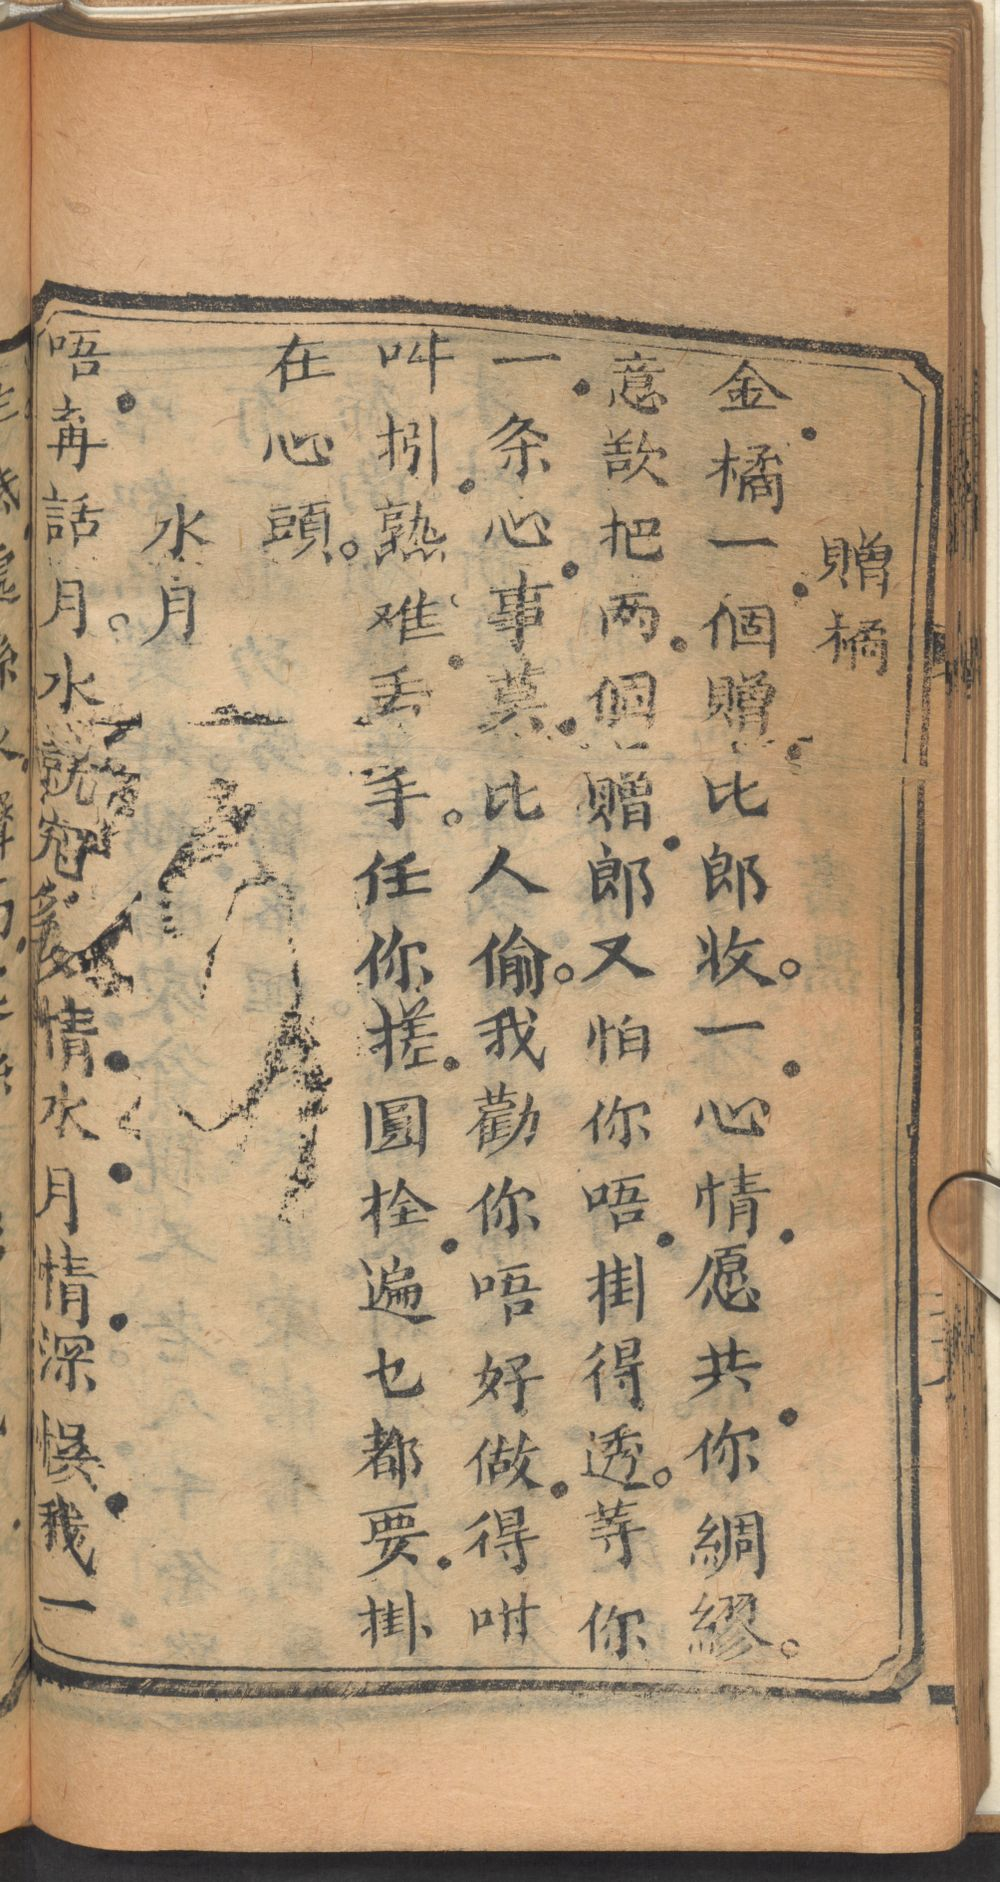 贈橘
金橘一個贈比郎收。一心情愿共你綢繆。
意欲把两個贈郎又怕你唔掛得透。等你
一条心事莫比人偷。我勸你唔好做得咁
呌引熟难丢手。任你搓圓拴遍乜都要掛
在心頭。
水月
唔再話月。水就寃情水月情深悞我一